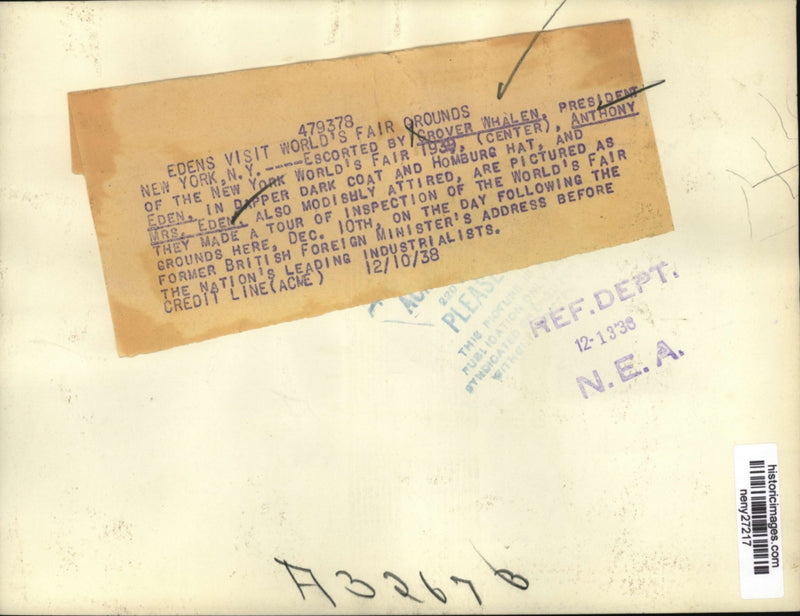 479378
EDENS VISIT WORLD'S FAIR GROUNDS
NEW YORK, N.Y. -----ESCORTED BY GROVER WHALEN, PRESIDENT
OF THE NEW YORK WORLD'S FAIR 1939, (CENTER), ANTHONY
EDEN, IN DAPPER DARK COAT AND HOMBURG HAT, AND
MRS. EDEN, ALSO MODISHLY ATTIRED, ARE PICTURED AS
THEY MADE A TOUR OF INSPECTION OF THE WORLD'S FAIR
GROUNDS HERE, DEC. 10TH, ON THE DAY FOLLOWING THE
FORMER BRITISH FOREIGN MINISTER'S ADDRESS BEFORE
THE NATION'S LEADING INDUSTRIALISTS.
CREDIT LINE(ACME) 12/10/38
PLEASE
THIS PICTURE
PUBLICATION
SYNDICATED
REF. DEPT.
12-13'38
N. E. A.
historicimages.com
neny27217
A32678